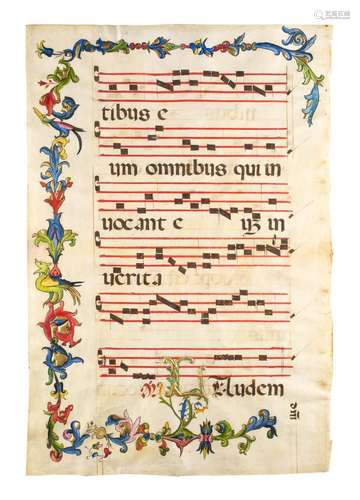 tibus e
um omnibus qui in
uocant e in
uerita
Laudem